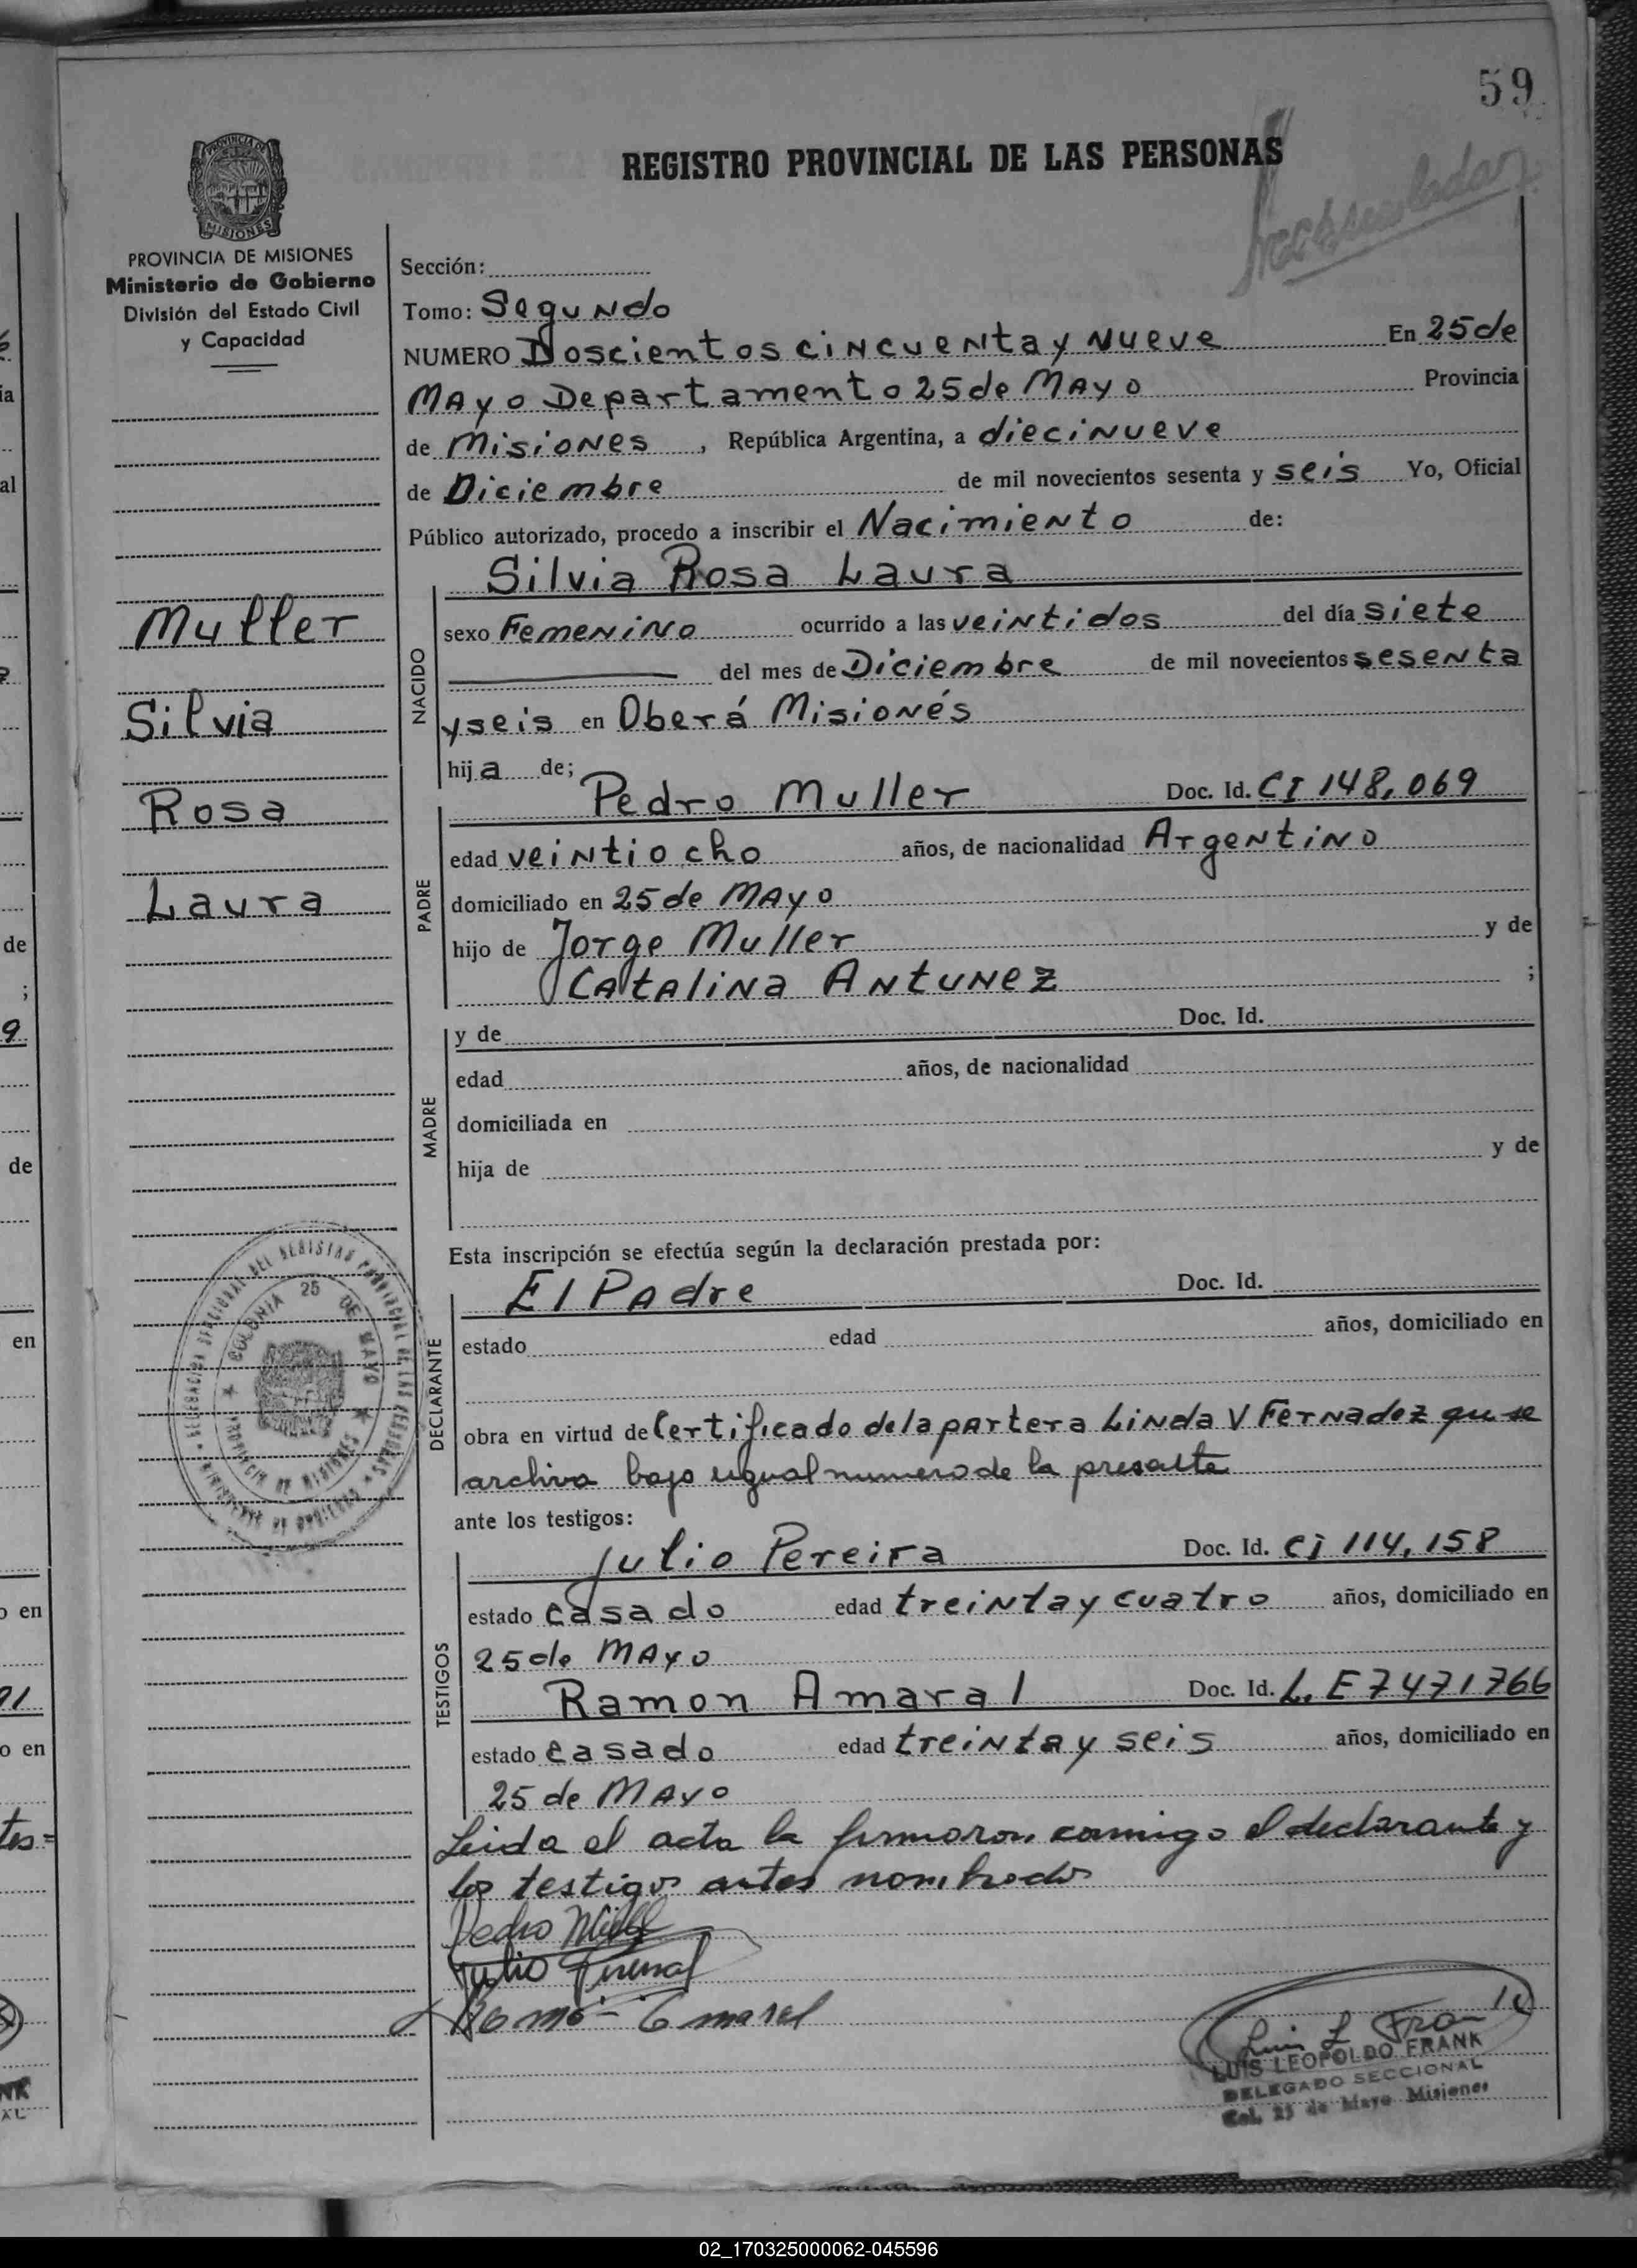 59
REGISTRO PROVINCIAL DE LAS PERSONAS
PROVINCIA DE
MISIONES
PROVINCIA DE MISIONES
Ministerio de Gobierno
División del Estado Civil
y Capacidad
Muller
Silvia
Rosa
Laura
Sección:
Tomo: Segundo
NUMERO Doscientos cincuenta y nueve En 25 de
Mayo Departamento 25 de Mayo Provincia
de Misiones, República Argentina, a diecinueve
de Diciembre de mil novecientos sesenta y seis Yo, Oficial
Público autorizado, procedo a inscribir el Nacimiento de:
Silvia Rosa Laura
NACIDO
sexo Femenino ocurrido a las veintidos del día siete
del mes de Diciembre de mil novecientos sesenta
y seis en Oberá Misionés
hija de;
PADRE
Pedro Muller Doc. Id. CI 148,069
edad veintiocho años, de nacionalidad Argentino
domiciliado en 25 de Mayo
hijo de Jorge Muller y de
Catalina Antunez ;
MADRE
y de Doc. Id.
edad años, de nacionalidad
domiciliada en
hija de y de
Esta inscripción se efectúa según la declaración prestada por:
DECLARANTE
El Padre Doc. Id.
estado edad años, domiciliado en
obra en virtud de Certificado de la partera Linda V Fernadez que se
archiva bajo ugual numero de la presente
ante los testigos:
TESTIGOS
Julio Pereira Doc. Id. Ci 114,158
estado casado edad treinta y cuatro años, domiciliado en
25 de Mayo
Ramon Amaral Doc. Id. L.E 7471766
estado casado edad treinta y seis años, domiciliado en
25 de Mayo
Leida el acta la firmaron conmigo el declarante y
los testigos antes nombrados
Pedro
Julio
Luis L Frank
LUIS LEOPOLDO FRANK
DELEGADO SECCIONAL
Col. 25 de Mayo Misiones
COLONIA 25 DE MAYO
PROVINCIA DE MISIONES
02_170325000062-045596